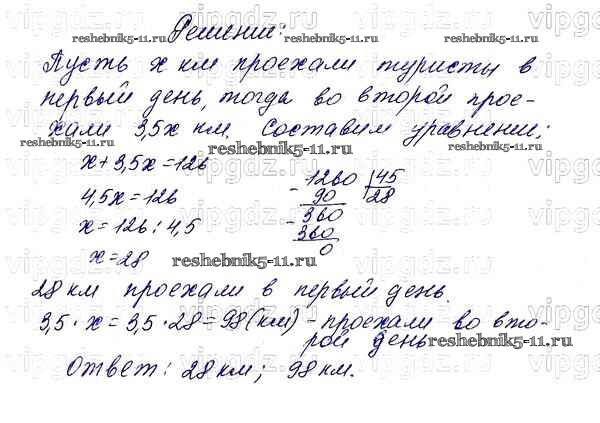 Решение:
Пусть x км проехали туристы в
первый день, тогда во второй прое-
хали 3,5x км. Составим уравнение;
x + 3,5x = 126
4,5x = 126
x = 126 : 4,5
x = 28
- 1260 | 45
90 28
- 360
360
0
28 км проехали в первый день.
3,5 · x = 3,5 · 28 = 98 (км) - проехали во вто-
рой день
Ответ: 28 км; 98 км.
reshebnik5-11.ru
vipgdz.ru